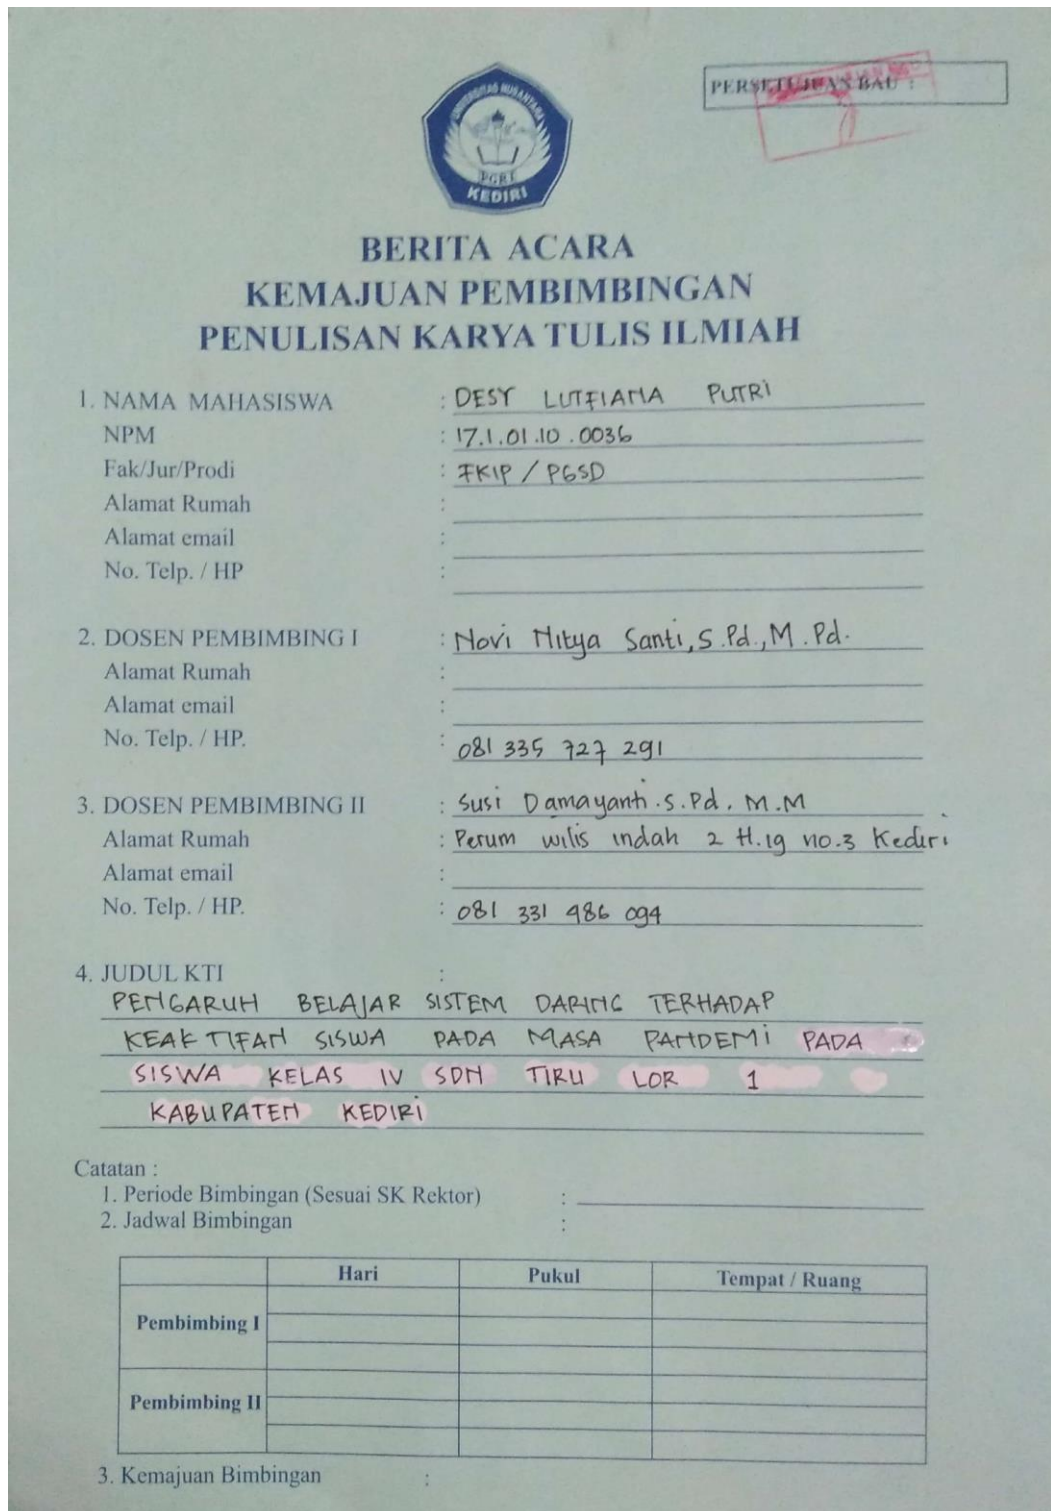 PERSETUJUAN BAU :
UNIVERSITAS NUSANTARA
PGRI
KEDIRI
BERITA ACARA
KEMAJUAN PEMBIMBINGAN
PENULISAN KARYA TULIS ILMIAH
1. NAMA MAHASISWA : DESY LUTFIANA PUTRI
NPM : 17.1.01.10.0036
Fak/Jur/Prodi : FKIP / PGSD
Alamat Rumah :
Alamat email :
No. Telp. / HP :
2. DOSEN PEMBIMBING I : Novi Nitya Santi, S.Pd., M.Pd.
Alamat Rumah :
Alamat email :
No. Telp. / HP. : 081 335 727 291
3. DOSEN PEMBIMBING II : Susi Damayanti.S.Pd. M.M
Alamat Rumah : Perum wilis indah 2 H.19 no.3 Kediri
Alamat email :
No. Telp. / HP. : 081 331 986 094
4. JUDUL KTI :
PENGARUH BELAJAR SISTEM DARING TERHADAP
KEAKTIFAN SISWA PADA MASA PANDEMI PADA
SISWA KELAS IV SDN TIRU LOR 1
KABUPATEN KEDIRI
Catatan :
1. Periode Bimbingan (Sesuai SK Rektor) :
2. Jadwal Bimbingan :
Hari Pukul Tempat / Ruang
Pembimbing I
Pembimbing II
3. Kemajuan Bimbingan :